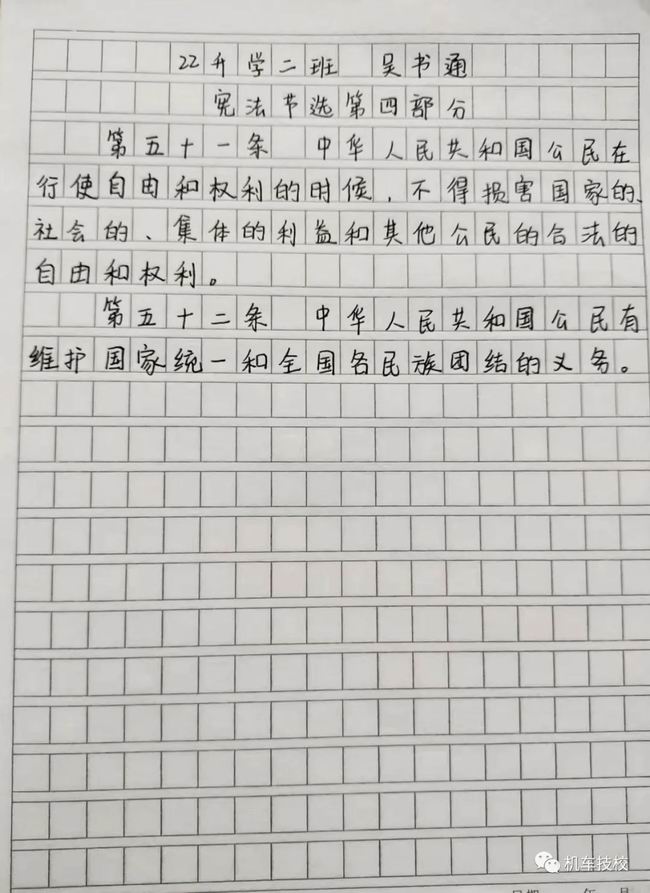 22升学二班 吴书通
宪法节选第四部分
第五十一条 中华人民共和国公民在
行使自由和权利的时候，不得损害国家的、
社会的、集体的利益和其他公民的合法的
自由和权利。
第五十二条 中华人民共和国公民有
维护国家统一和全国各民族团结的义务。
机车技校